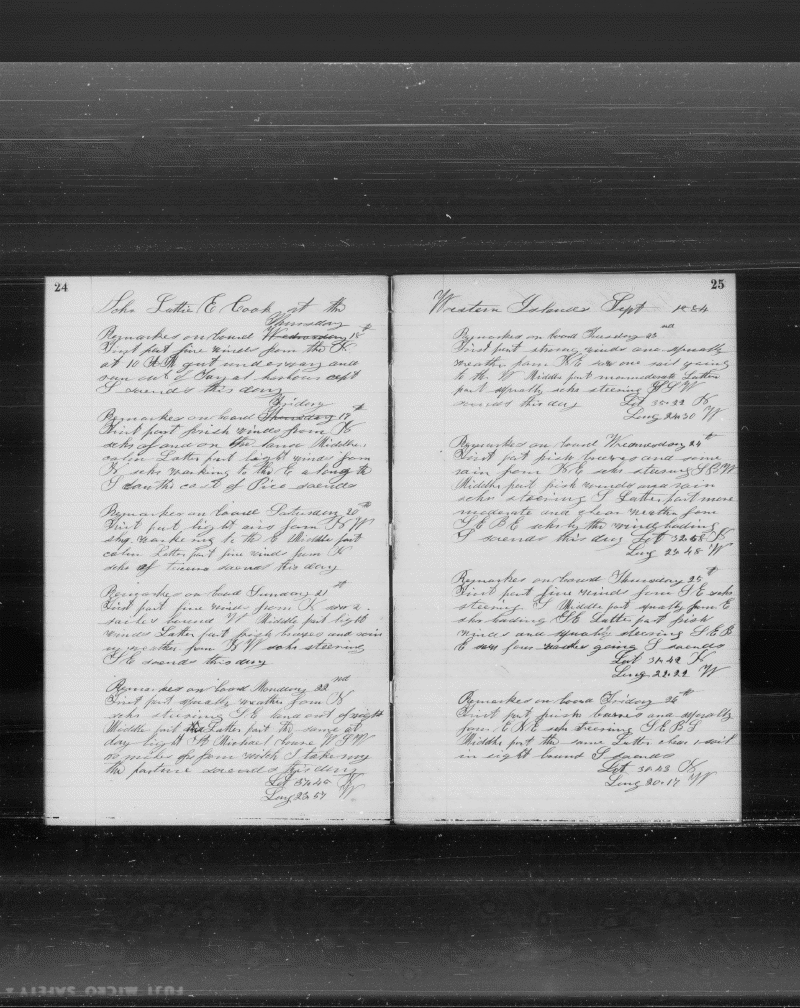 24
Schr Lottie E Cook at the
Thursday
Remarkes on board Wednesday 18th
First part fine winds from the N
at 10 A M gut under way and
run out of harbour capt
S soends this day
Friday
Remarkes on board Thursday 19th
First part frish winds from N
schr of and on the land Middle
calm Latter part light winds from
N schr warking to the E along the
S the cost of Pico soends
Remarkes on board Saturday 20th
First part light airs from N W
shp warking to the E Middle part
calm Latter part fine winds from N
schr of soends this day
Remarkes on board Sunday 21st
First part fine winds from N saw 2
sailes bound W Middle part light
winds Latter part frish breeses and
weather from N W schr steering
S E soends this day
Remarkes on board Monday 22nd
First part squaly weather from N
schr steering S E land out of sight
Middle part Latter part the same at
day light St Michael bore
miles of from wich I take my
the parture soends this day
Lat N
Long W
25
Western Islands Sept 1884
Remarkes on board Tuesday 23nd
First part strong winds and squaly
weather from N E saw one sail going
to the W Middle part more moderate Latter
part squaly schr steering
soends this day Lat N
Long W
Remarkes on board Wednesday 24th
First part frish breeses and some
rain from N E schr steering
Middle part frish winds and rain
schr steering S Latter part more
moderate and clear weather from
S E B E schr by the wind heading
S soends this day Lat N
Long W
Remarkes on board Thursday 25th
First part fine winds from S E schr
steering S Middle part squaly from E
shr heading Latter part frish
winds and squaly steering S E B
E saw four going S soends
Lat N
Long 22.22 W
Remarkes on board Friday 26th
First part frish and squaly
from E N E schr steering S E B S
Middle part the same Latter clear 1 sail
in sight bound S soends
Lat N
Long 20.17 W
FUJI MICRO SAFETY